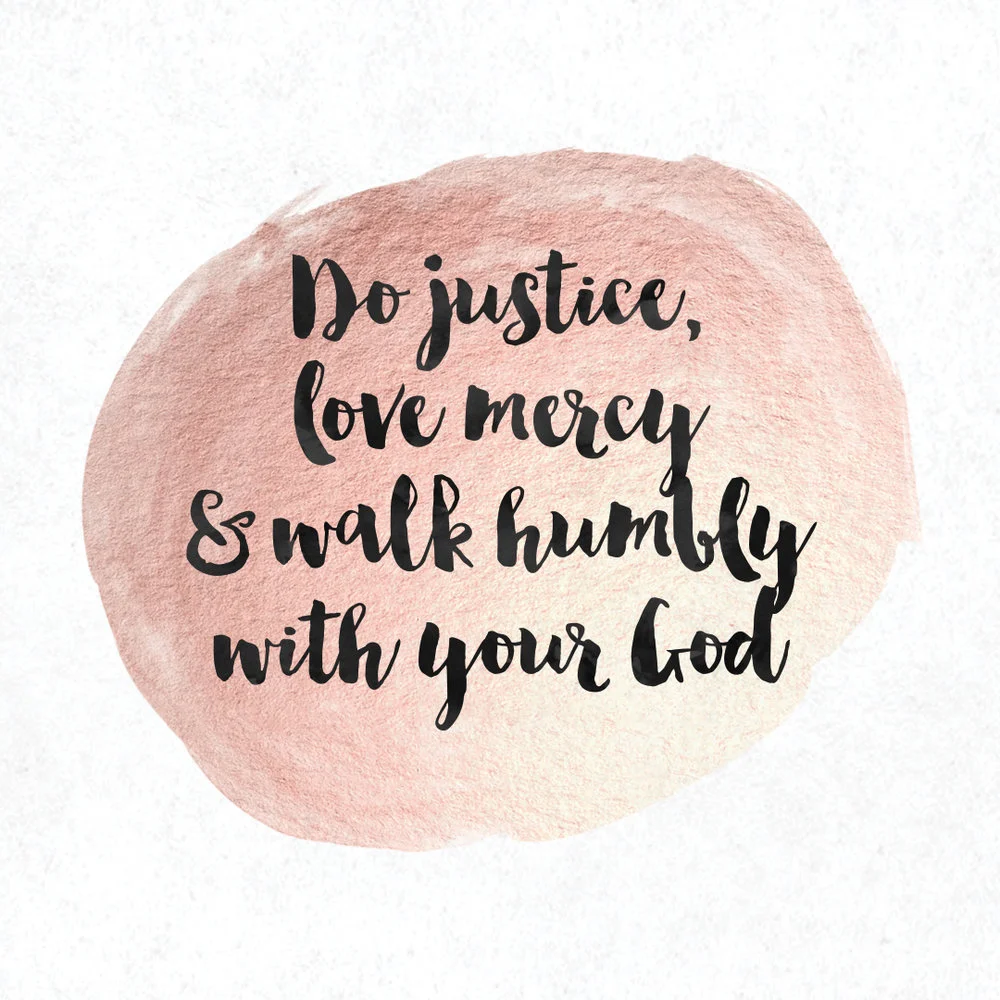 Do justice,
love mercy
& walk humbly
with your God